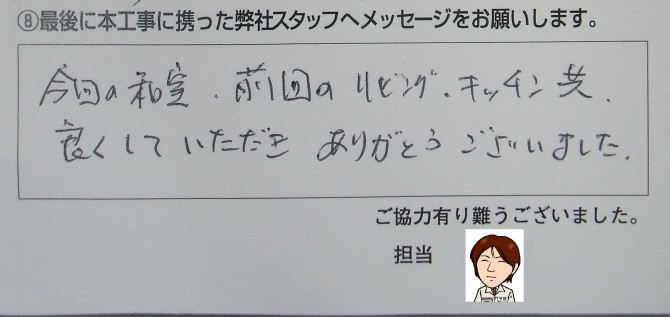 ⑧最後に本工事に携った弊社スタッフへメッセージをお願いします。
今回の和室、前回のリビング、キッチン共、
良くしていただき ありがとうございました。
ご協力有り難うございました。
担当